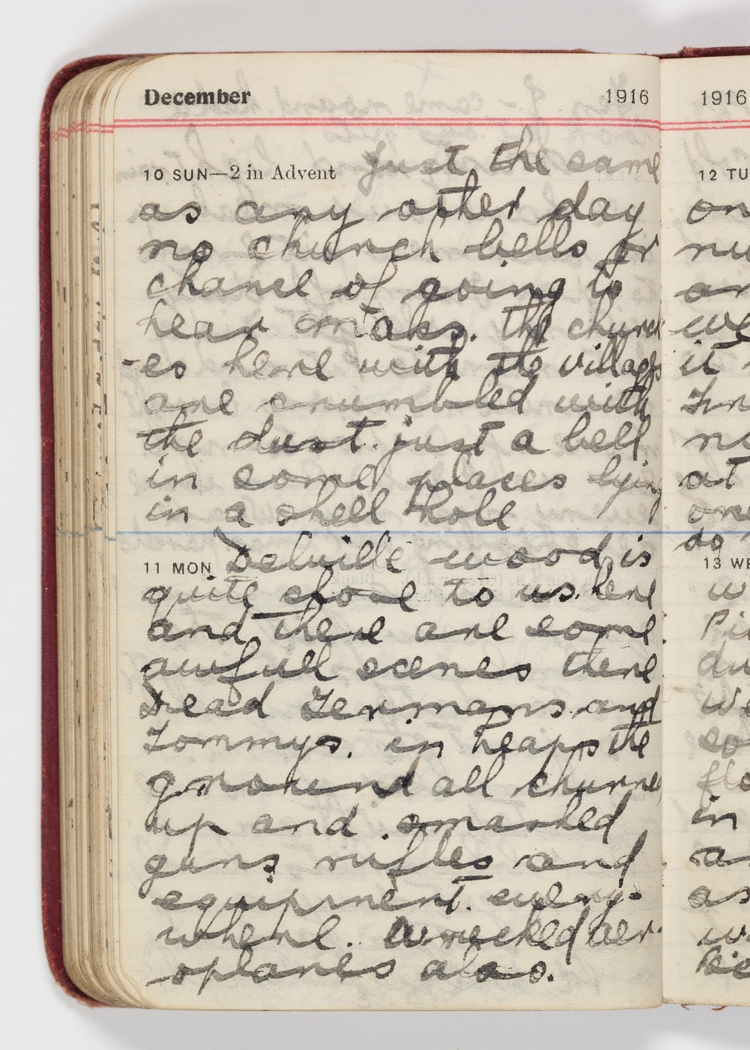 December 1916
10 SUN—2 in Advent Just the same
as any other day
no church bells or
chance of going to
hear the church
-es here with the villages
are crumbled with
the dust. just a bell
in some places lying
in a shell hole
11 MON Delville wood is
quite close to us here
and there are some
awfull scenes there
Dead Germans and
Tommys. in heaps the
ground all churned
up and smashed
guns rifles and
equipment. every-
where. Wrecked aer-
oplanes also.
1916
12 TU
on
nu
or
we
it
no
at
one
do
13 WE
w
du
we
so
flo
in
a
as
w